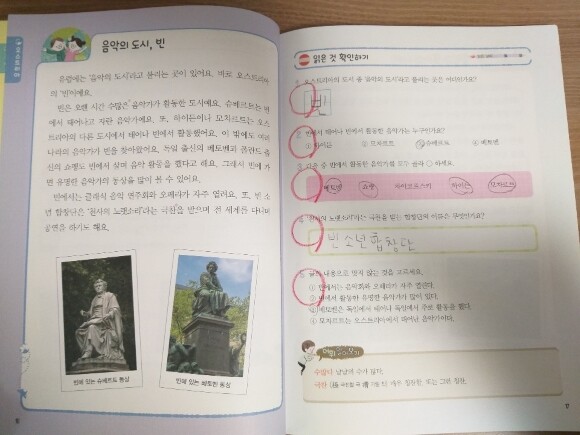 음악의 도시, 빈
유럽에는 '음악의 도시'라고 불리는 곳이 있어요. 바로 오스트리아
의 '빈'이에요.
빈은 오랜 시간 수많은 음악가가 활동한 도시예요. 슈베르트는 빈
에서 태어나고 자란 음악가예요. 또, 하이든이나 모차르트는 오스
트리아의 다른 도시에서 태어나 빈에서 활동했어요. 이 밖에도 여러
나라의 음악가가 빈을 찾아왔어요. 독일 출신의 베토벤과 폴란드 출
신의 쇼팽도 빈에서 살며 음악 활동을 했다고 해요. 그래서 빈에 가
면 유명한 음악가의 동상을 많이 볼 수 있어요.
빈에서는 클래식 음악 연주회와 오페라가 자주 열려요. 또, 빈 소
년 합창단은 '천사의 노랫소리'라는 극찬을 받으며 전 세계를 다니며
공연을 하기도 해요.
빈에 있는 슈베르트 동상
빈에 있는 베토벤 동상
읽은 것 확인하기
1 오스트리아의 도시 중 '음악의 도시'라고 불리는 곳은 어디인가요?
빈
2 빈에서 태어나 빈에서 활동한 음악가는 누구인가요?
① 하이든 ② 모차르트 ③ 슈베르트 ④ 베토벤
3 다음 중 빈에서 활동한 음악가를 모두 골라 ○ 하세요.
베토벤 쇼팽 차이코프스키 하이든 모차르트
4 '천사의 노랫소리'라는 극찬을 받는 합창단의 이름은 무엇인가요?
빈 소년 합창단
5 글의 내용으로 맞지 않는 것을 고르세요.
① 빈에서는 음악회와 오페라가 자주 열린다.
② 빈에서 활동한 유명한 음악가가 많이 있다.
③ 베토벤은 독일에서 태어나 독일에서 주로 활동을 했다.
④ 모차르트는 오스트리아에서 태어난 음악가이다.
수많다 낱낱의 수가 많다.
극찬 매우 칭찬함. 또는 그런 칭찬.
17